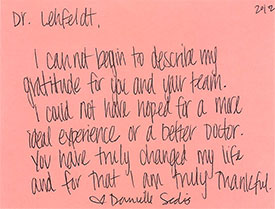 Dr. Lehfeldt,
I can not begin to describe my
gratitude for you and your team.
I could not have hoped for a more
ideal experience or a better Doctor.
You have truly changed my life
and for that I am truly thankful.
♡ Danielle